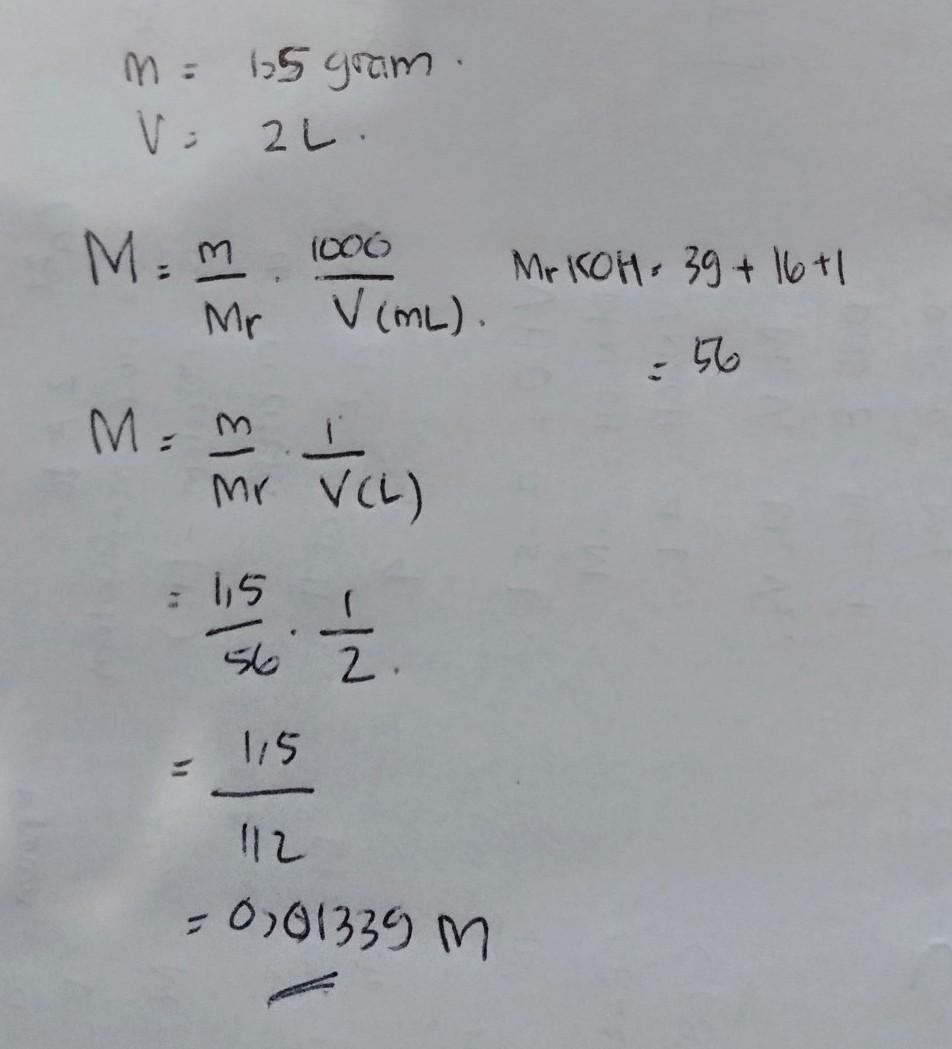 m = 1,5 gram.
V = 2 L.
M = m/Mr . 1000/V (mL). Mr KOH = 39 + 16 + 1
= 56
M = m/Mr . 1/V(L)
= 1,5/56 . 1/2.
= 1,5/112
= 0,01339 M